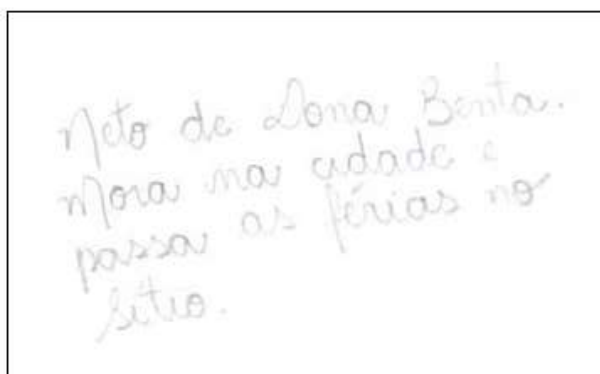 Neto de Dona Benta.
Mora na cidade e
passa as férias no
sítio.